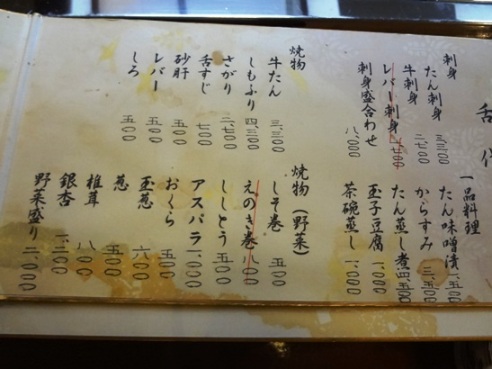 舌代
刺身
たん刺身 三、三〇〇
牛刺身 二、七〇〇
レバー刺身
刺身盛合わせ 八、〇〇〇
一品料理
たん味噌漬 一、五〇〇
からすみ 三、五〇〇
たん蒸し煮 四、五〇〇
玉子豆腐 一、〇〇〇
茶碗蒸し 一、〇〇〇
焼物
牛たん 三、三〇〇
しもふり 四、三〇〇
さがり 二、七〇〇
舌すじ 七〇〇
砂肝 五〇〇
レバー 五〇〇
しろ 五〇〇
焼物(野菜)
しそ巻 五〇〇
えのき巻 八〇〇
ししとう 五〇〇
アスパラ 一、〇〇〇
おくら 五〇〇
玉葱 六〇〇
葱 五〇〇
椎茸 八〇〇
銀杏
野菜盛り 二、〇〇〇